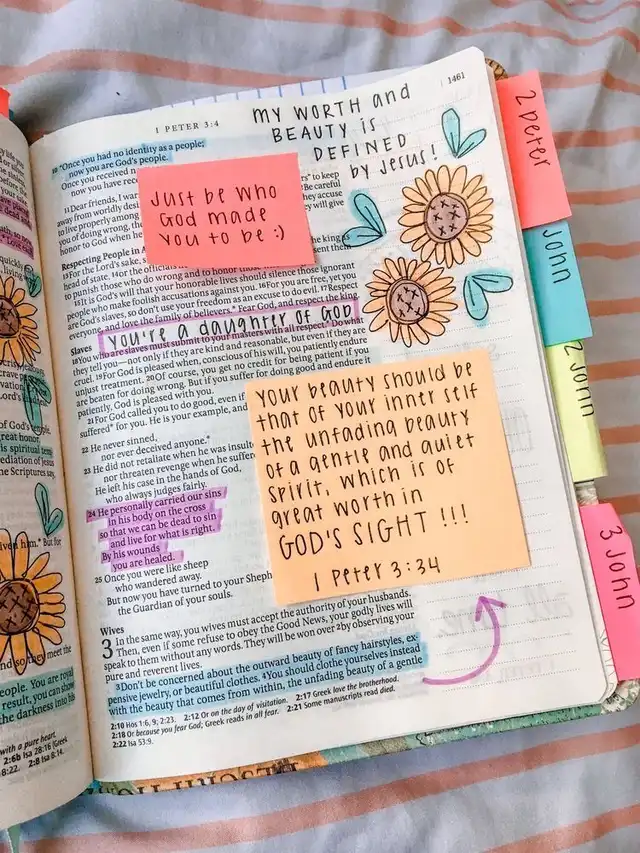 1461
1 PETER 3:4
MY WORTH AND
BEAUTY IS
DEFINED
by JESUS!
10 "Once you had no identity as a people;
now you are God's people.
Once you received n
now you have rece
Just be who
God made
you to be :)
11 Dear friends, I war
away from worldly des
to live properly among
of you doing wrong, the
honor to God when he
to keep
Be careful
accuse
will give
Respecting People in A
13 For the Lord's sake,
the king as
head of state. 14 or the officials
sent them
to punish those who do wrong and to honor those
15 It is God's will that your honorable lives should silence those ignorant
people who make foolish accusations against you. 16 For you are free, yet you
are God's slaves, so don't use your freedom as an excuse to do evil. 17 Respect
everyone, and love the family of believers.* Fear God, and respect the king.
you're a daughter of God
Slaves
18 You who are slaves must submit to your masters with all respect.* Do what
they tell you—not only if they are kind and reasonable, but even if they are
cruel. 19 For God is pleased when, conscious of his will, you patiently endure
unjust treatment. 20 Of course, you get no credit for being patient if you
are beaten for doing wrong. But if you suffer for doing good and endure it
patiently, God is pleased with you.
21 For God called you to do good, even if
suffered* for you. He is your example, and
22 He never sinned,
nor ever deceived anyone.*
23 He did not retaliate when he was insulte
nor threaten revenge when he suffere
He left his case in the hands of God,
who always judges fairly.
24 He personally carried our sins
in his body on the cross
so that we can be dead to sin
and live for what is right.
By his wounds
you are healed.
25 Once you were like sheep
who wandered away.
But now you have turned to your Sheph
the Guardian of your souls.
Your beauty should be
that of your inner self
the unfading beauty
of a gentle and quiet
spirit, which is of
great worth in
GOD'S SIGHT !!!
1 Peter 3:34
Wives
3 In the same way, you wives must accept the authority of your husbands.
Then, even if some refuse to obey the Good News, your godly lives will
speak to them without any words. They will be won over 2 by observing your
pure and reverent lives.
3 Don't be concerned about the outward beauty of fancy hairstyles, ex-
pensive jewelry, or beautiful clothes. 4 You should clothe yourselves instead
with the beauty that comes from within, the unfading beauty of a gentle
2:10 Hos 1:6, 9; 2:23. 2:12 Or on the day of visitation. 2:17 Greek love the brotherhood.
2:18 Or because you fear God; Greek reads in all fear. 2:21 Some manuscripts read died.
2:22 Isa 53:9.
2 Peter
John
2 John
3 John